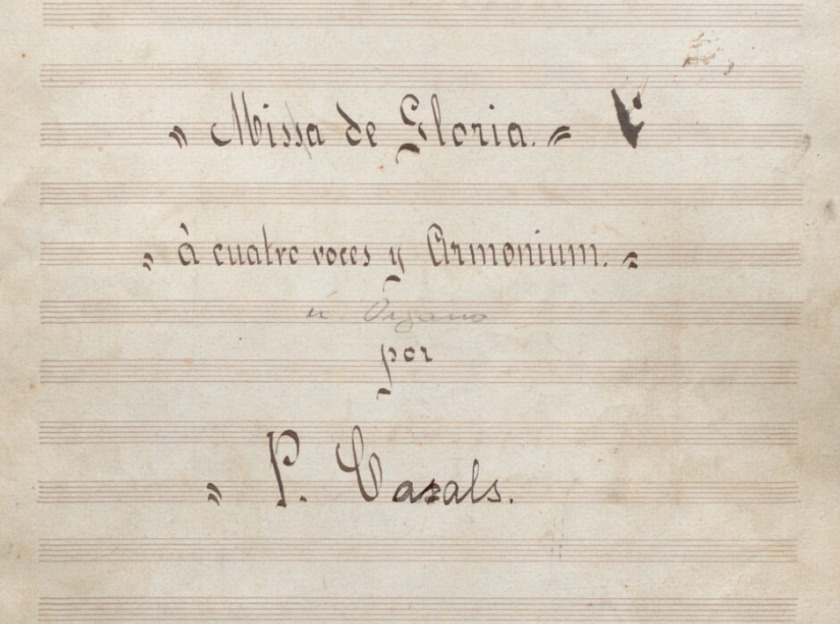 " Missa de Gloria. "
" à cuatro voces y Armonium. "
ú Órgano
por
" P. Casals.